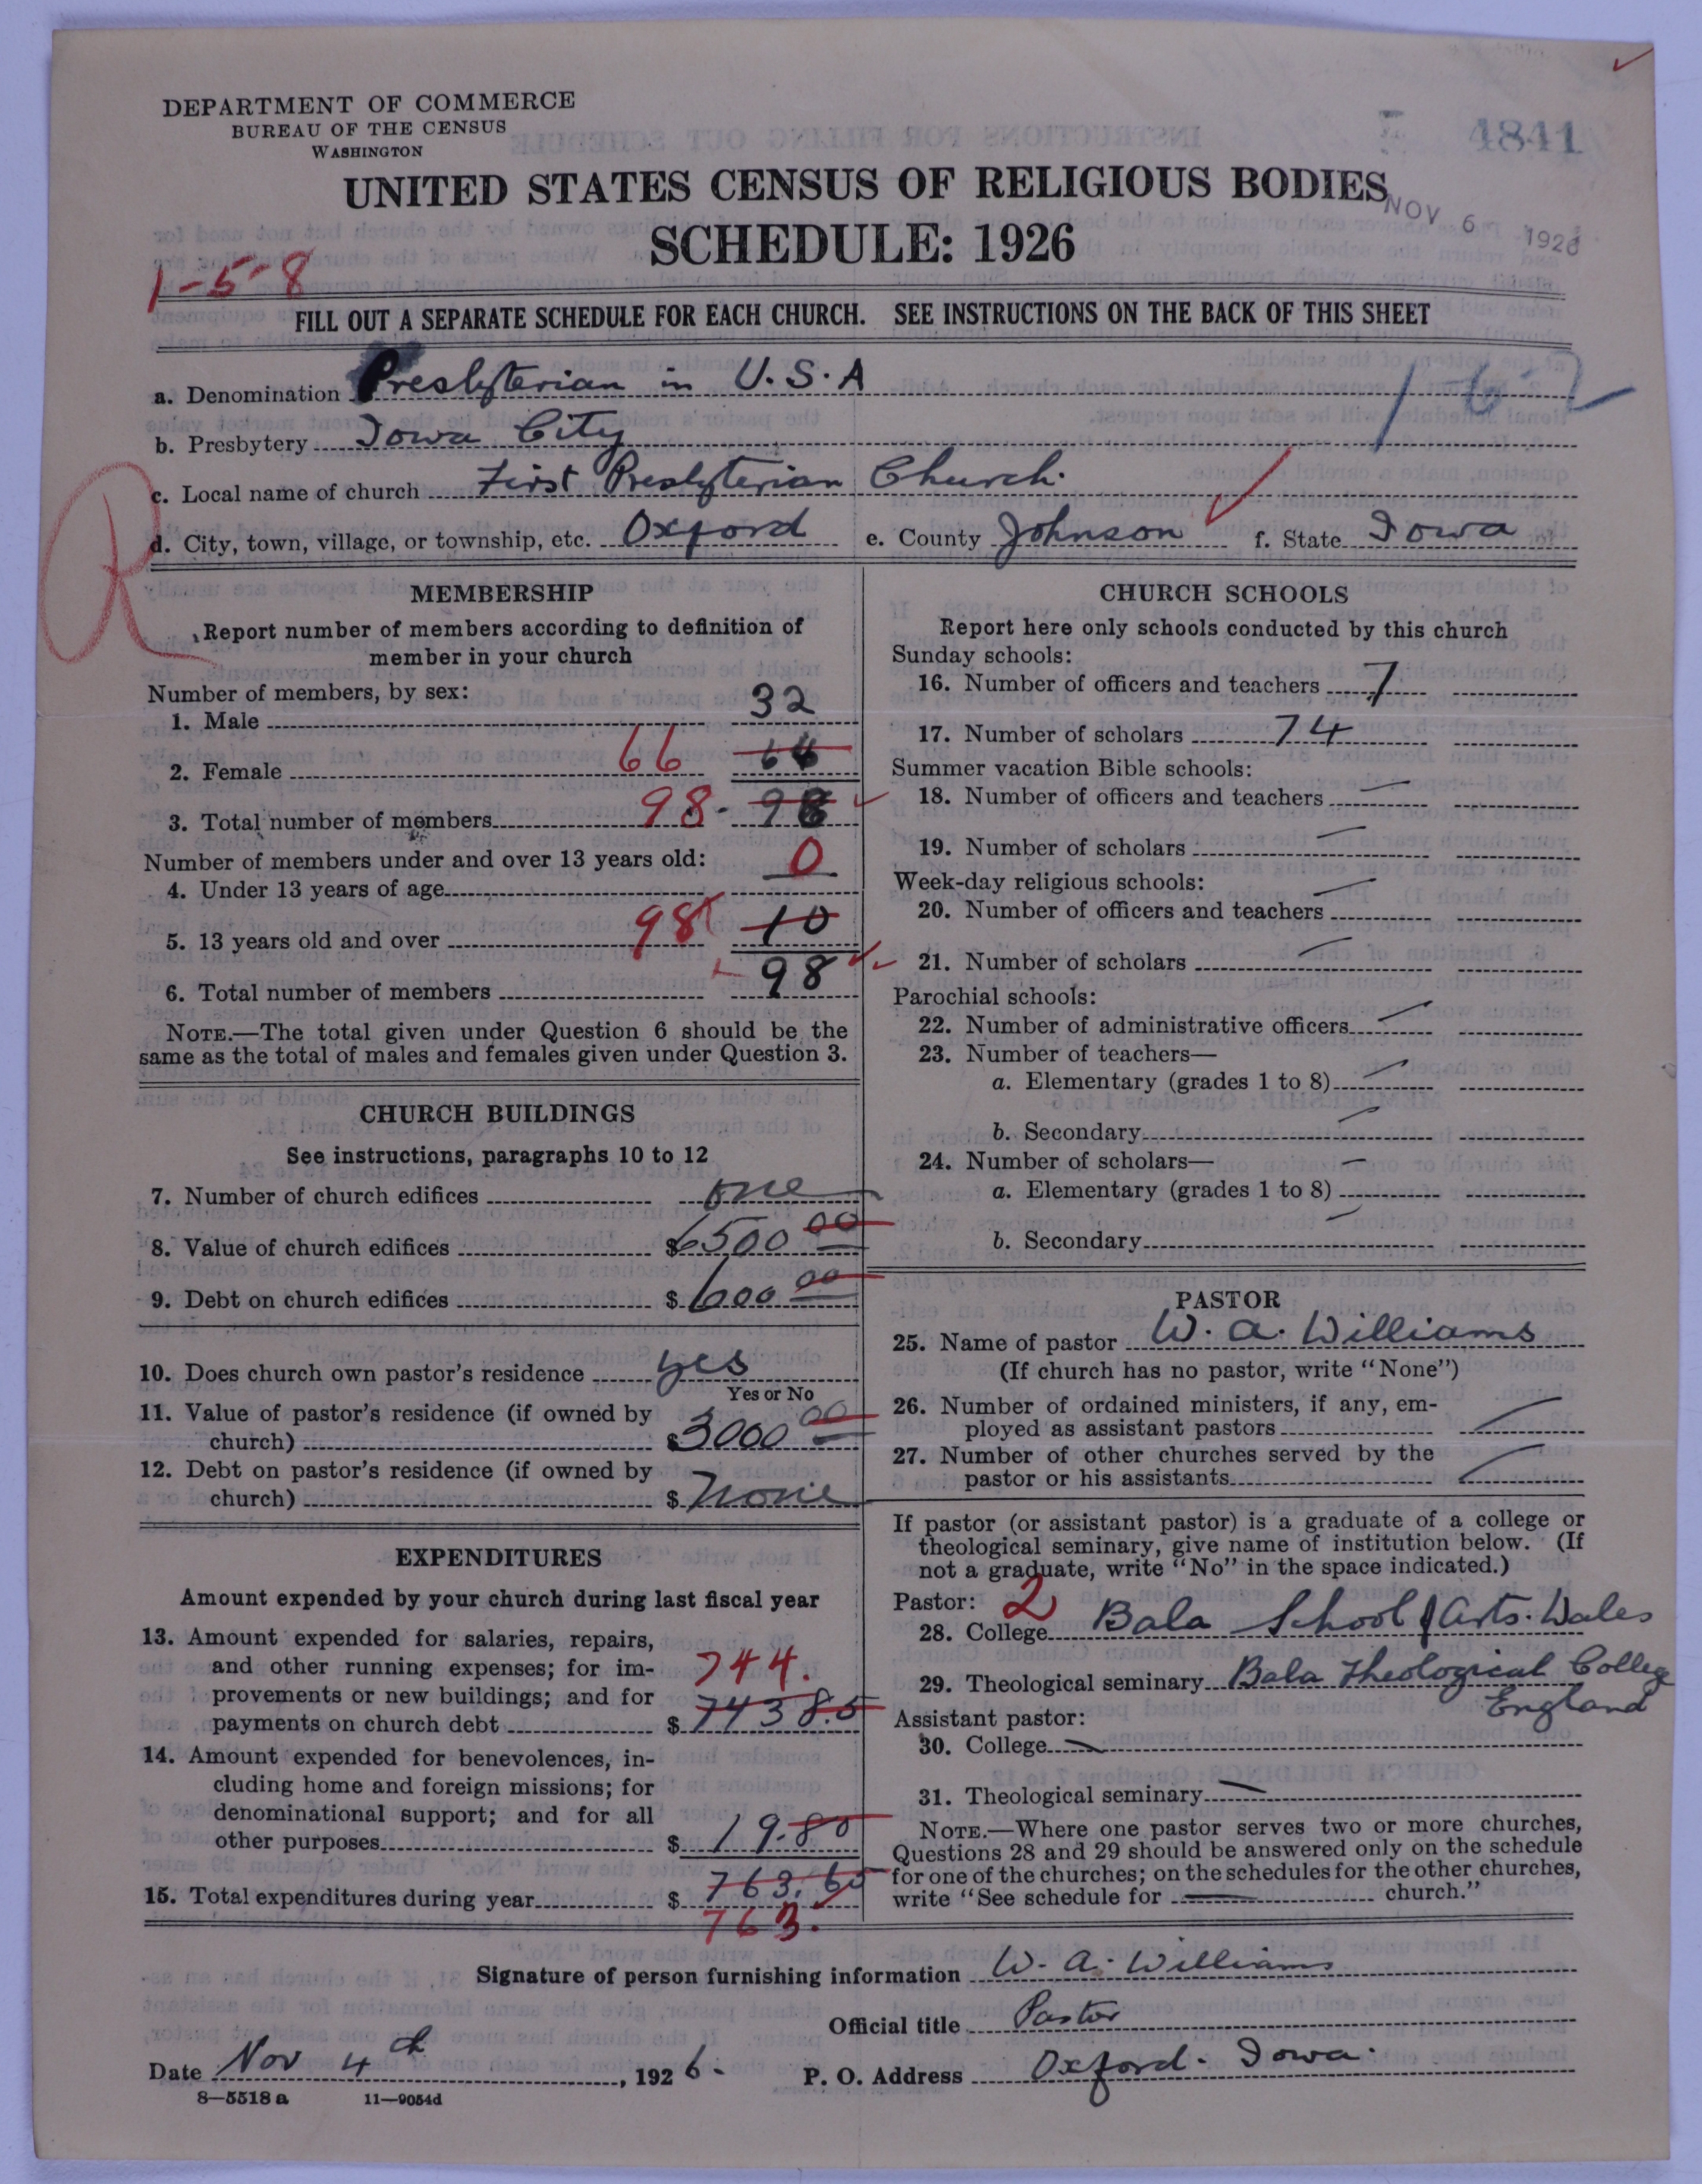 DEPARTMENT OF COMMERCE
BUREAU OF THE CENSUS
WASHINGTON
4841
UNITED STATES CENSUS OF RELIGIOUS BODIES
NOV 6 1926
SCHEDULE: 1926
1-5-8
FILL OUT A SEPARATE SCHEDULE FOR EACH CHURCH. SEE INSTRUCTIONS ON THE BACK OF THIS SHEET
a. Denomination Presbyterian in U.S.A
b. Presbytery Iowa City
c. Local name of church First Presbyterian Church.
R
d. City, town, village, or township, etc. Oxford e. County Johnson f. State Iowa
MEMBERSHIP
Report number of members according to definition of
member in your church
Number of members, by sex:
1. Male 32
2. Female 66 64
3. Total number of members 98 - 98
Number of members under and over 13 years old:
4. Under 13 years of age 0
5. 13 years old and over 98 10
6. Total number of members 98
NOTE.—The total given under Question 6 should be the
same as the total of males and females given under Question 3.
CHURCH BUILDINGS
See instructions, paragraphs 10 to 12
7. Number of church edifices one
8. Value of church edifices $6500 00
9. Debt on church edifices $600 00
10. Does church own pastor's residence yes
Yes or No
11. Value of pastor's residence (if owned by
church) $3000 00
12. Debt on pastor's residence (if owned by
church) $none
EXPENDITURES
Amount expended by your church during last fiscal year
13. Amount expended for salaries, repairs,
and other running expenses; for im-
744.
provements or new buildings; and for
payments on church debt $743 8.5
14. Amount expended for benevolences, in-
cluding home and foreign missions; for
denominational support; and for all
other purposes $19.80
15. Total expenditures during year $763.65
763.
CHURCH SCHOOLS
Report here only schools conducted by this church
Sunday schools:
16. Number of officers and teachers 7
17. Number of scholars 74
Summer vacation Bible schools:
18. Number of officers and teachers —
19. Number of scholars —
Week-day religious schools:
20. Number of officers and teachers —
21. Number of scholars —
Parochial schools:
22. Number of administrative officers —
23. Number of teachers—
a. Elementary (grades 1 to 8) —
b. Secondary —
24. Number of scholars—
a. Elementary (grades 1 to 8) —
b. Secondary —
PASTOR
25. Name of pastor W. A. Williams
(If church has no pastor, write "None")
26. Number of ordained ministers, if any, em-
ployed as assistant pastors —
27. Number of other churches served by the
pastor or his assistants —
If pastor (or assistant pastor) is a graduate of a college or
theological seminary, give name of institution below. (If
not a graduate, write "No" in the space indicated.)
Pastor: 2
28. College Bala School of Arts. Wales
29. Theological seminary Bala Theological College
England
Assistant pastor:
30. College —
31. Theological seminary —
NOTE.—Where one pastor serves two or more churches,
Questions 28 and 29 should be answered only on the schedule
for one of the churches; on the schedules for the other churches,
write "See schedule for — church."
Signature of person furnishing information W. A. Williams
Official title Pastor
Date Nov 4th, 1926- P. O. Address Oxford. Iowa.
8—5518 a 11—9054d